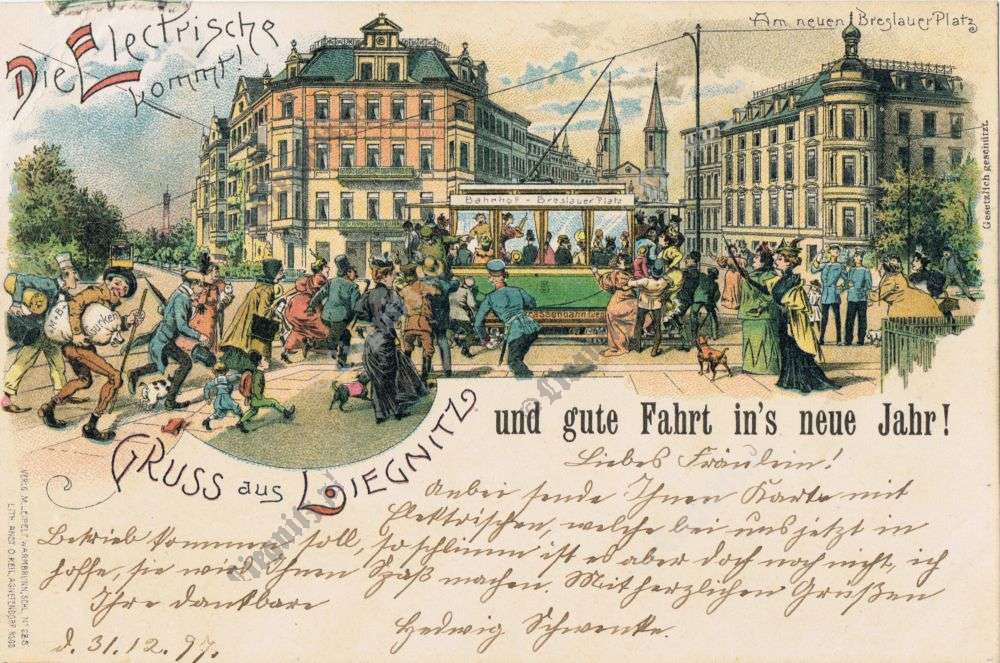 Die Electrische
kommt!
Am neuen Breslauer Platz
Gesetzlich geschützt.
Bahnhof - Breslauer Platz
Gurken
GRUSS aus LIEGNITZ
und gute Fahrt in's neue Jahr!
Liebes Fräulein!
Anbei sende Ihnen Karte mit
Elektrischen, welche bei uns jetzt in
Betrieb kommen soll, so schlimm ist es aber doch noch nicht, ich
hoffe, sie wird Ihnen Spaß machen. Mit herzlichen Grüßen
Ihre dankbare
Hedwig Schwenke.
d. 31.12.97.
VERLG. M. LEIPELT, WARMBRUNN, SCHL. Nº 226
LITH. ANST. O. KEIL, AGNETENDORF RSGB.